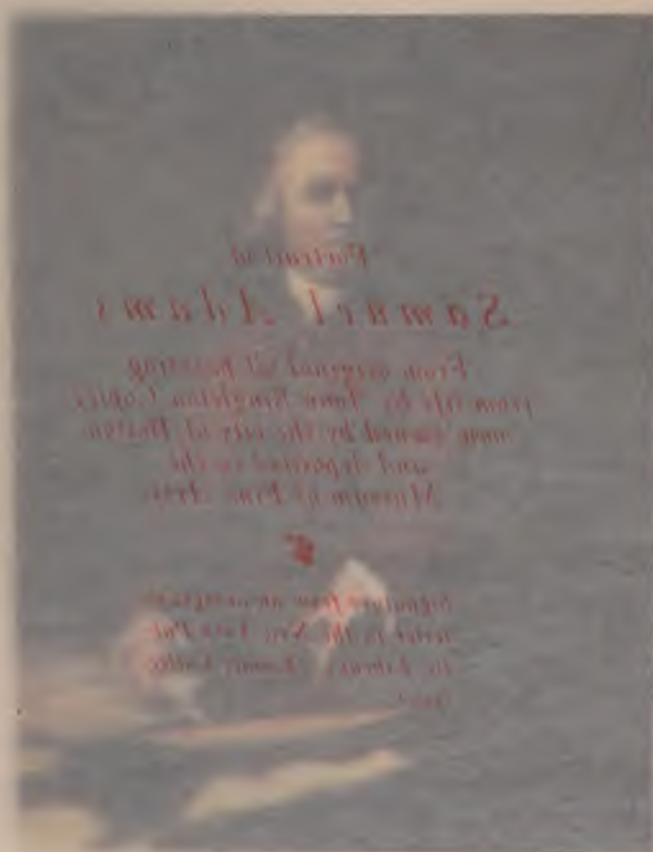 Portrait of
Samuel Adams
From original oil painting
from life by John Singleton Copley
now owned by the city of Boston
and deposited in the
Museum of Fine Arts
Signature from an autograph
letter in the New York Pub-
lic Library, Lenox Collec-
tion